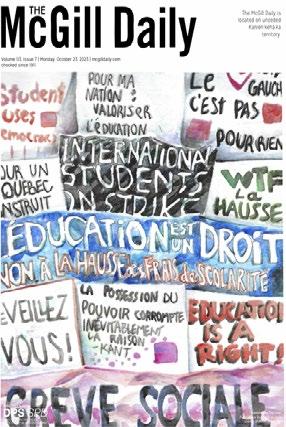 THE
McGill Daily
The McGill Daily is
located on unceded
Kanien'kehá:ka
territory.
Volume 113, Issue 7 | Monday, October 23, 2023 | mcgilldaily.com
Student
uses
emocrac
POUR MA
NATION:
VALORISER
L'ÉDUCATION
Le
GAUCH
C'EST PAS
POUR RIEN
INTERNATIONAL
STUDENTS
ON STRIKE
OUR UN
QUÉBEC
NSTRUIT
WTF
La
HAUSSE
ÉDUCATION EST UN DROIT
NON À LA HAUSSE des FRAIS de SCOLARITÉ
EVEILLEZ
VOUS!
LA POSSESSION DU
POUVOIR CORROMPTE
INÉVITABLEMENT
LA RAISON
-KANT
EDUCATION
IS A
RIGHT!
GREVE SOCIALE
DPS SPD